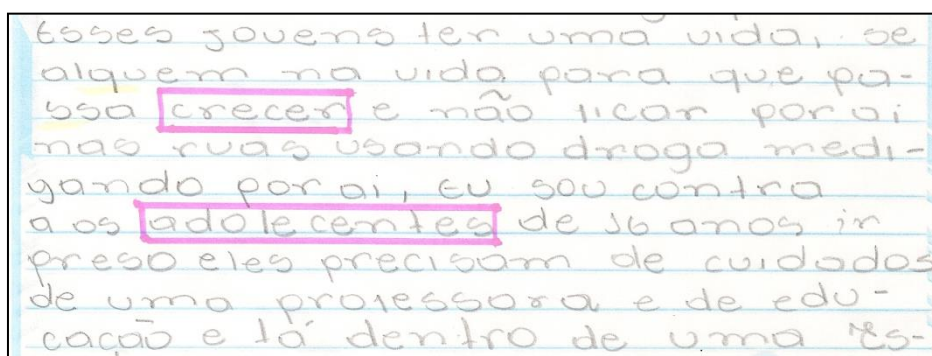 esses jovens ter uma vida, se
alguem na vida para que pa-
ssa crecer e não ficar por ai
nas ruas usando droga medi-
gando por ai, eu sou contra
a os adolecentes de 16 anos ir
preso eles precisam de cuidados
de uma professora e de edu-
cação e tá dentro de uma es-